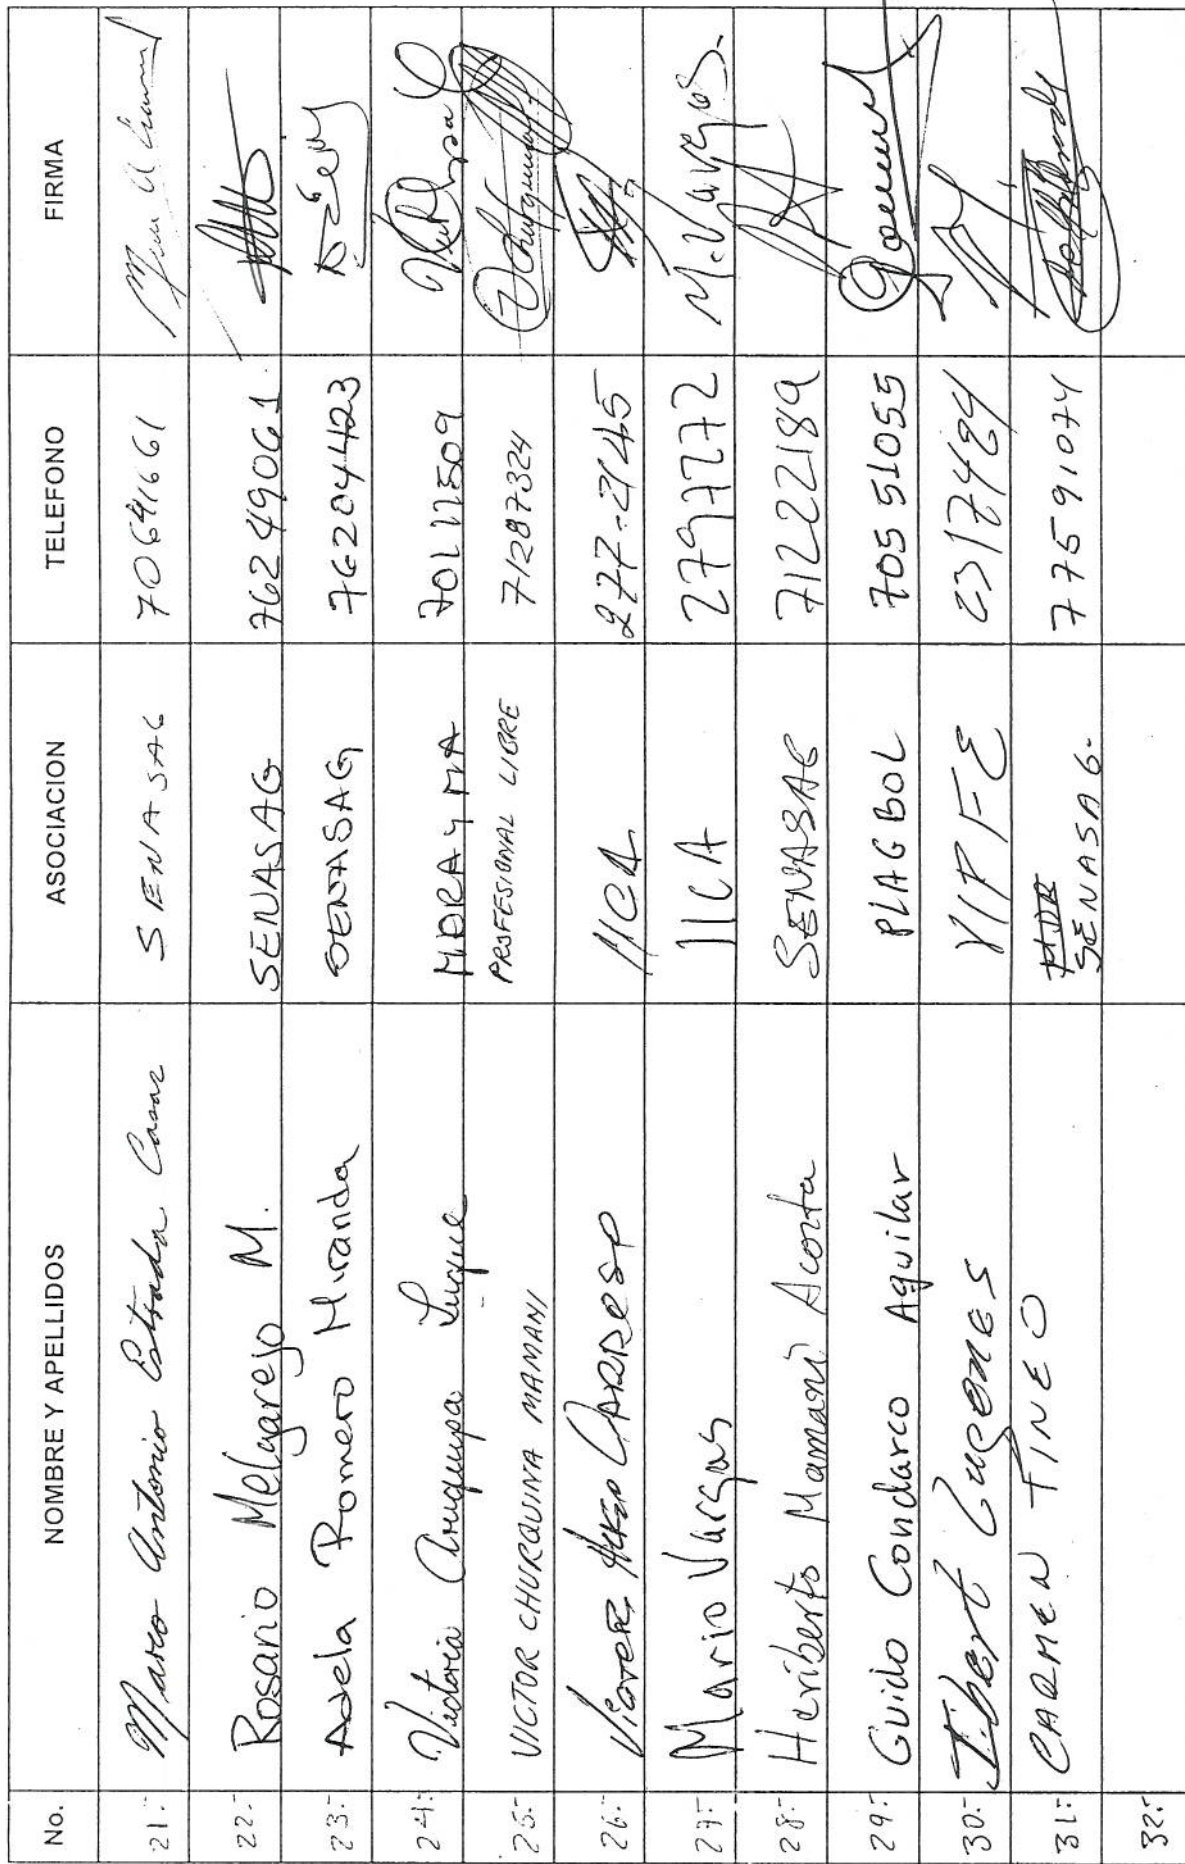 No. NOMBRE Y APELLIDOS ASOCIACION TELEFONO FIRMA
21.- Marco Antonio Estrada SENASAG 70641661
22.- Rosario Melgarejo M. SENASAG 76249061
23.- Adela Romero Miranda SENASAG 76204423
24.- Victoria Aruquipa Luque
25.- VICTOR CHURQUINA MAMANI PROFESIONAL LIBRE 71287324
26.- Victor Hugo CARDOSO IICA 277-2145
27.- Mario Vargas IICA 2797272 M. Vargas.
28.- Heriberto Mamani Acosta SENASAG 71222189
29.- Guido Condarco Aguilar PLAGBOL 70551055
30.- VIPFE
31.- CARMEN TINEO SENASAG. 77591074
32.-